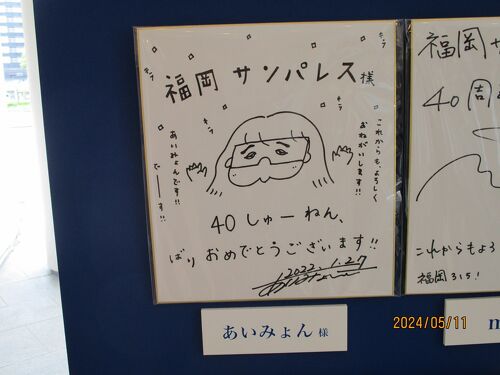 福岡 サンパレス 様
キラ
キラ
キラ
キラ
これからも、よろしく
おねがいします!!
あいみょんです!!
でーーす!!
40しゅーねん、
ばり おめでとうございます!!
2022.1.27
あいみょん 様
福岡サ
40周
これからもよろ
福岡315!
m
2024/05/11